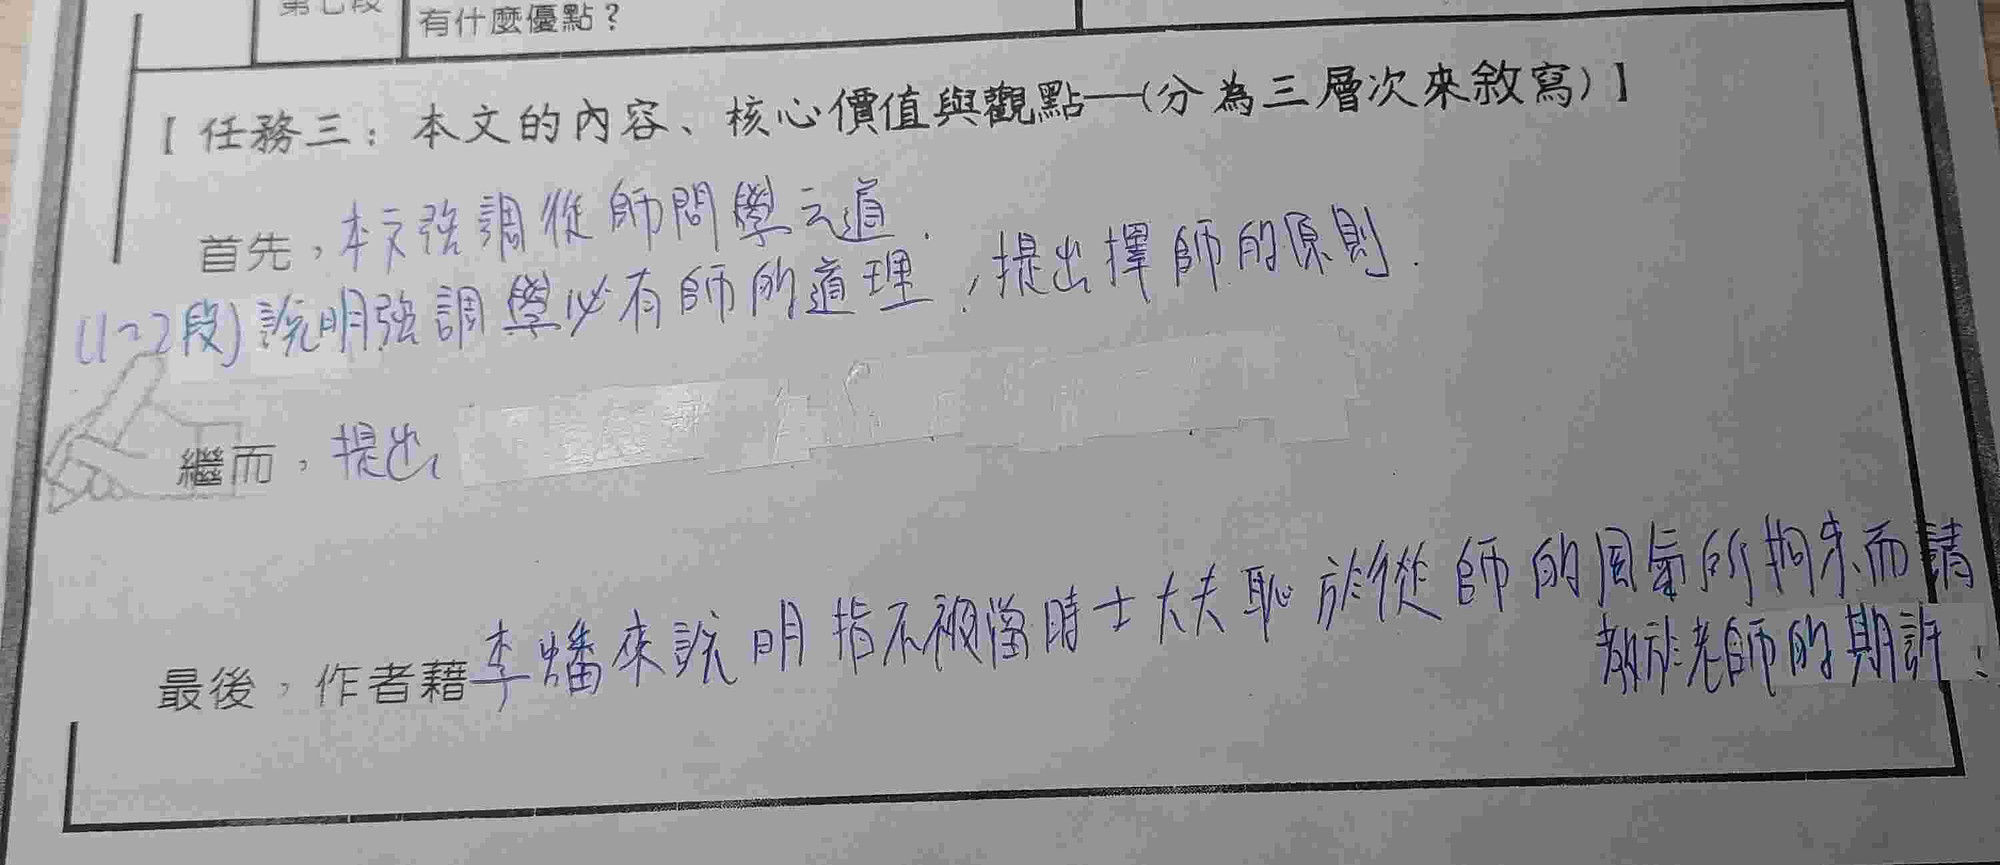 第七段
有什麼優點？
【任務三：本文的內容、核心價值與觀點—(分為三層次來敘寫)】
首先，本文強調從師問學之道.
(1~2段)說明強調學必有師的道理，提出擇師的原則.
繼而，提出
最後，作者藉李蟠來說明指不被當時士大夫恥於從師的風氣所拘束而請
教於老師的期許：